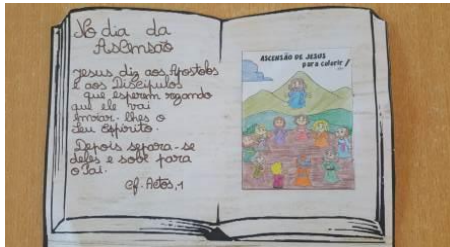 No dia da
Ascensão
Jesus diz aos Apostolos
e aos Discípulos
que esperem rezando
que ele vai
enviar-lhes o
seu espírito.
Depois separa-se
deles e sobe para
o Pai.
Cf. Actos, 1
ASCENSÃO DE JESUS
para colorir!